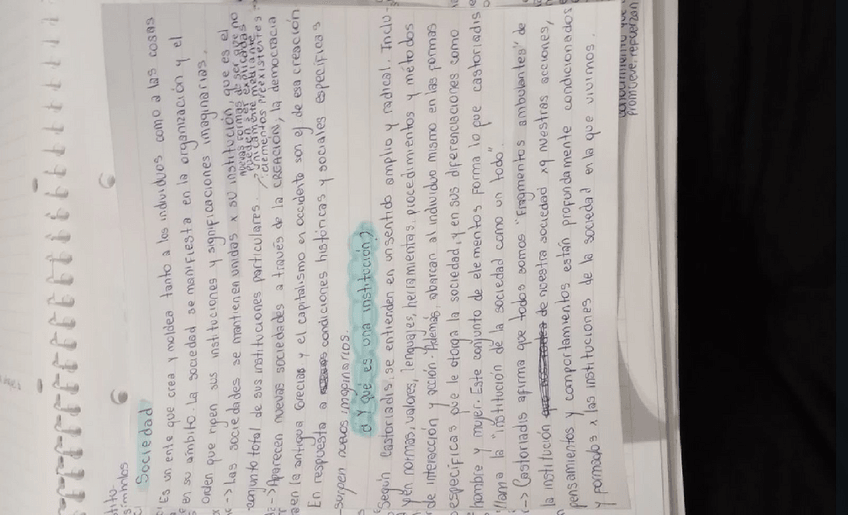 Sociedad
Es un ente que crea y moldea tanto a los individuos como a las cosas
en su ambito. La sociedad se manifiesta en la organización y el
orden que rigen sus instituciones y significaciones imaginarias.
-> Las sociedades se mantienen unidas x su institución que es el
conjunto total de sus instituciones particulares.
nuevas formas de ser que no
pueden ser explicadas
unicamente mediante
elementos preexistentes
-> Aparecen nuevas sociedades a través de la CREACIÓN, la democracia
en la antigua Grecia y el capitalismo en occidente son ej de esa creación
En respuesta a condiciones históricas y sociales específicas
surgen imaginarios.
¿Y qué es una institución?
Según Castoriadis, se entienden en un sentido amplio y radical. Inclu
yen normas, valores, lenguajes, herramientas, procedimientos y métodos
de interacción y acción. Además, abarcan al individuo mismo en las formas
específicas que le otorga la sociedad, y en sus diferenciaciones como
hombre y mujer. Este conjunto de elementos forma lo que castoriadis
llama la "institución de la sociedad como un todo"
-> Castoriadis afirma que todos somos "Fragmentos ambulantes" de
la institución de nuestra sociedad xq nuestras acciones,
pensamientos y comportamientos están profundamente condicionados
y formados x las instituciones de la sociedad en la que vivimos.
conocimiento que
promueve, refuerzan
símbolos